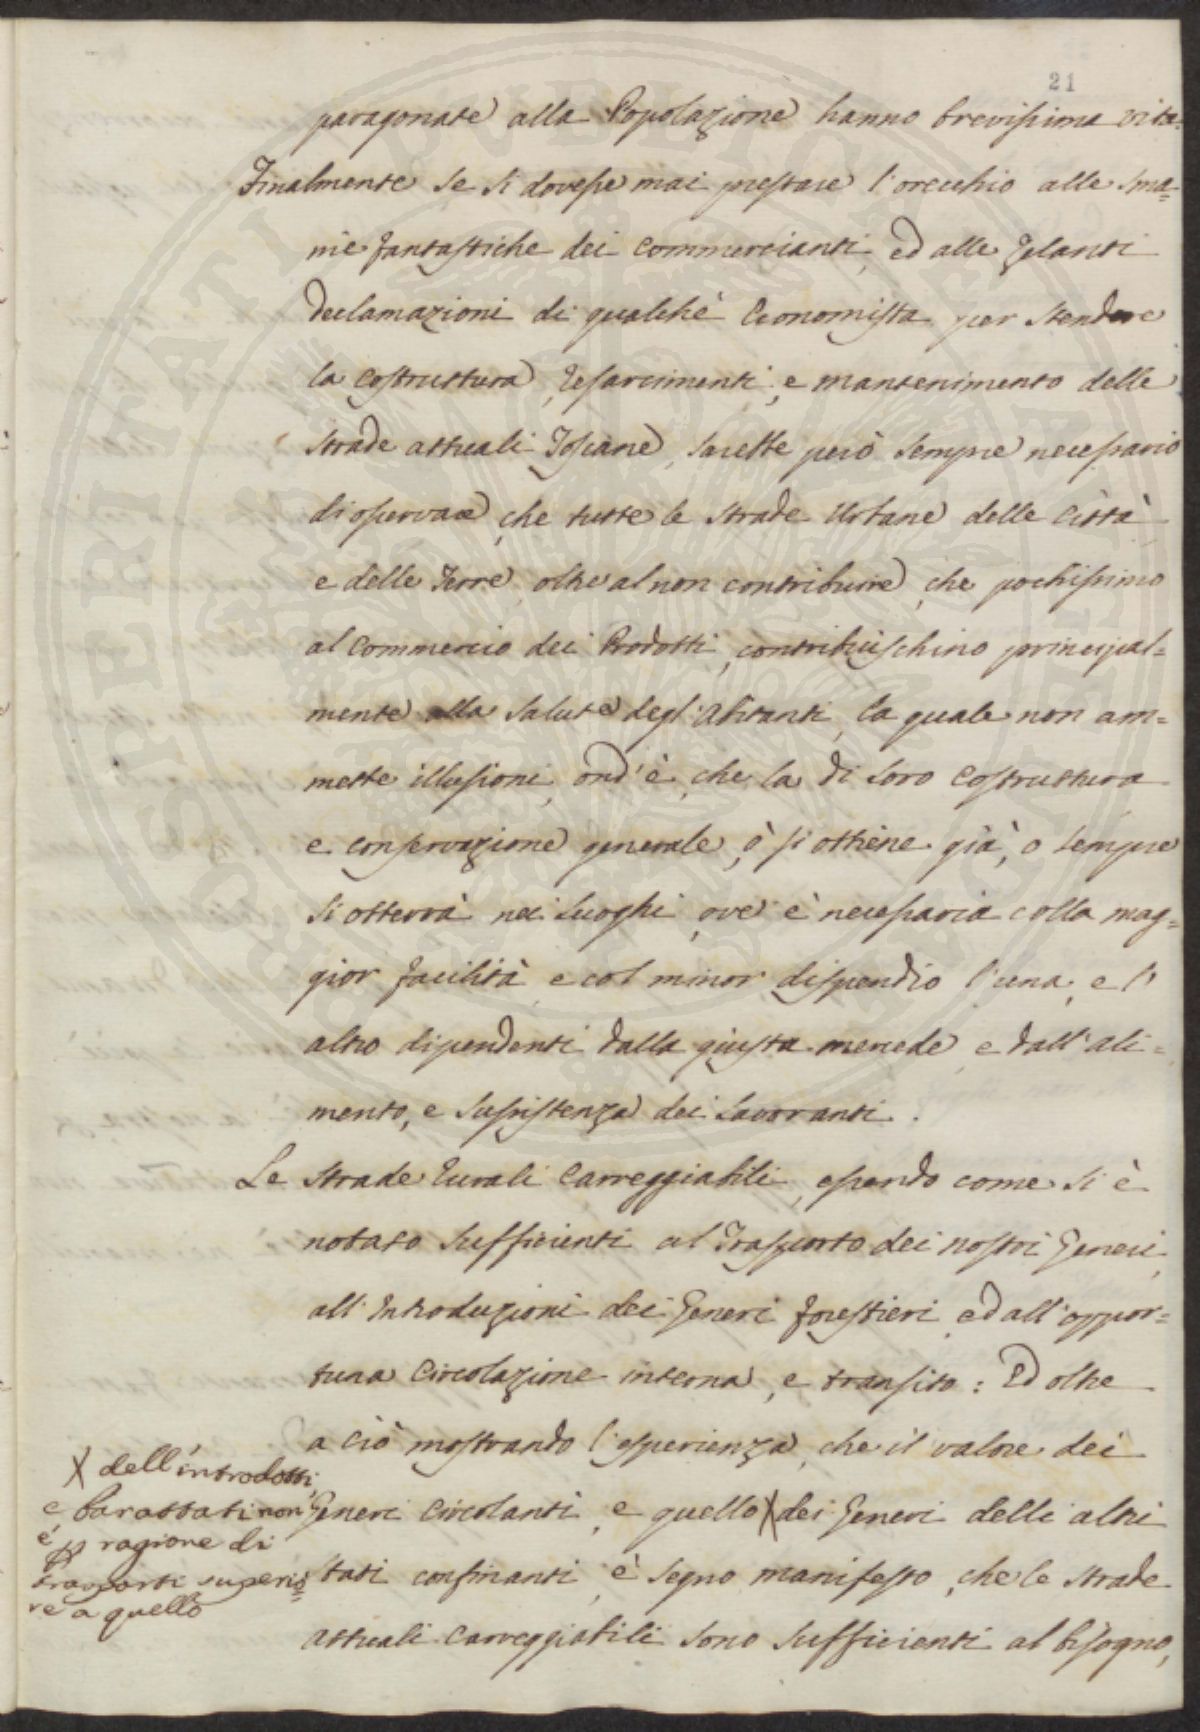 21
paragonate alla Popolazione hanno brevissima vita.
Finalmente se si dovesse mai prestare l'orecchio alle sma=
nie fantastiche dei Commercianti, ed alle zelanti
declamazioni di qualche Economista per stendere
la costruttura, resarcimenti, e mantenimento delle
strade attuali Toscane, sarebbe però sempre necessario
di osservare, che tutte le strade Urbane delle Città
e delle Terre, oltre al non contribuire, che pochissimo
al Commercio dei Prodotti, contribuischino principal=
mente alla salute degl'Abitanti, la quale non am=
mette illusioni, ond'è, che la di loro Costruttura
e conservazione generale, ò si ottiene già, o sempre
si otterrà nei Luoghi, ove è necessaria colla mag=
gior facilità, e col minor dispendio l'una, e l'
altro dipendenti dalla giusta mercede, e dall'ali=
mento, e sussistenza dei Lavoranti.
Le strade rurali Carreggiabili, essendo come si è
notato sufficienti al Trasporto dei nostri Generi,
all'Introduzioni dei Generi forestieri, ed all'oppor=
tuna Circolazione interna, e transito: Ed oltre
a ciò mostrando l'esperienza, che il valore dei
Generi Circolanti, e quello X dei Generi delli altri
Stati confinanti, è segno manifesto, che le strade
attuali Carreggiabili sono sufficienti al bisogno,
X dell'introdotti,
e barattati non
è p ragione di
trasporti superio=
re a quello
PROSPERITATI PVBLICAE AVGENDAE